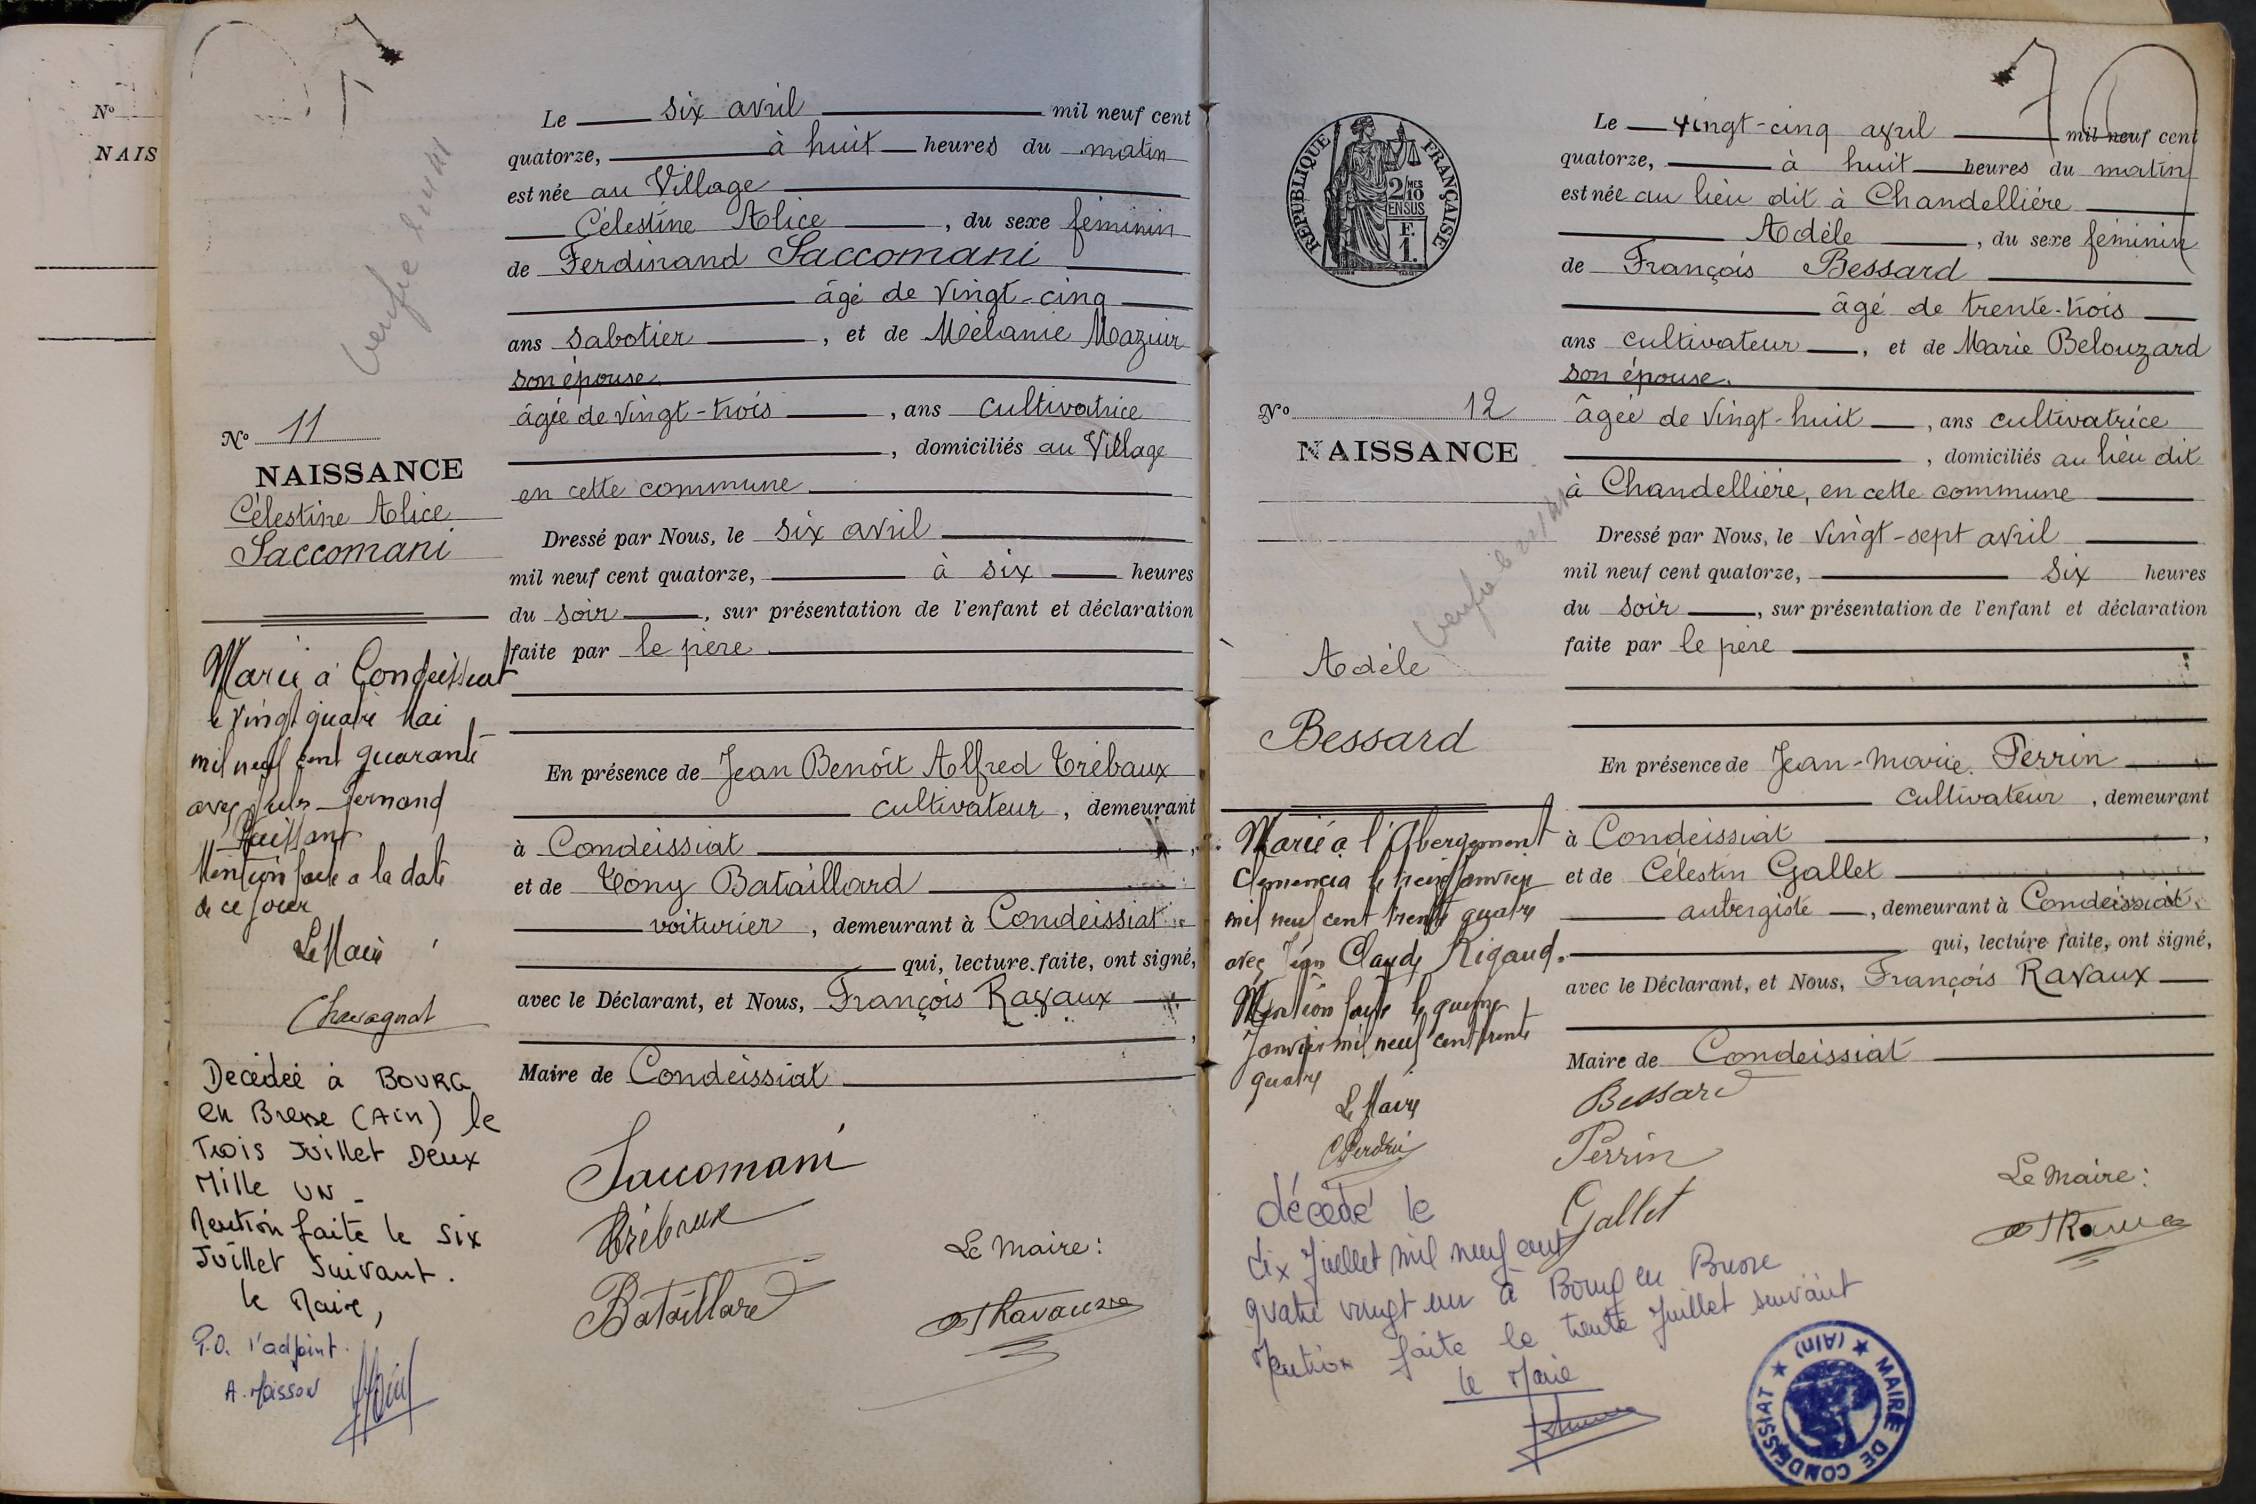 Nº
NAIS
Le six avril mil neuf cent
quatorze, à huit heures du matin
est née au Village
Célestine Alice, du sexe féminin
de Ferdinand Saccomani
âgé de vingt-cinq
ans sabotier, et de Mélanie Mazuir
son épouse
âgée de vingt-trois, ans cultivatrice
, domiciliés au Village
en cette commune
Dressé par Nous, le six avril
mil neuf cent quatorze, à six heures
du soir, sur présentation de l'enfant et déclaration
faite par le père
En présence de Jean Benoît Alfred Trébaux
cultivateur, demeurant
à Condeissiat,
et de Tony Bataillard
voiturier, demeurant à Condeissiat
qui, lecture faite, ont signé,
avec le Déclarant, et Nous, François Ravaux
,
Maire de Condeissiat
Saccomani
Trébaux
Bataillard
Le Maire:
Ravaux
Nº 11
NAISSANCE
Célestine Alice
Saccomani
Marié à Condeissiat
le vingt quatre Mai
mil neuf cent quarante
avec Jules Fernand
Mention faite a la date
de ce jour
Le Maire
Chavagnat
Décédée à BOURG
en Bresse (Ain) le
Trois Juillet Deux
Mille UN -
Mention faite le six
Juillet Suivant.
le Maire,
P.O. l'adjoint.
A. Moisson
vérifié le
REPUBLIQUE FRANÇAISE
2/10 MES
EN SUS
F.
1.
Nº 12
NAISSANCE
vérifié le
Adèle
Bessard
Marié à l'Abergement
Clemencia le treize Janvier
mil neuf cent trente quatre
avec Jean Claude Rigaud.
Mention faite le quinze
Janvier mil neuf cent trente
quatre
Le Maire
décédé le
dix Juillet mil neuf cent
quatre vingt un à Bourg en Bresse
Mention faite le trente Juillet suivant
le Maire
Le vingt-cinq avril mil neuf cent
quatorze, à huit heures du matin
est née au lieu dit à Chandellière
Adèle, du sexe féminin
de François Bessard
âgé de trente-trois
ans cultivateur, et de Marie Belouzard
son épouse.
âgée de vingt-huit, ans cultivatrice
, domiciliés au lieu dit
à Chandellière, en cette commune
Dressé par Nous, le vingt-sept avril
mil neuf cent quatorze, six heures
du soir, sur présentation de l'enfant et déclaration
faite par le père
En présence de Jean-Marie Perrin
cultivateur, demeurant
à Condeissiat,
et de Célestin Gallet
aubergiste, demeurant à Condeissiat.
qui, lecture faite, ont signé,
avec le Déclarant, et Nous, François Ravaux
Maire de Condeissiat
Bessard
Perrin
Gallet
Le Maire:
MAIRIE DE CONDEISSIAT ★ (Ain) ★